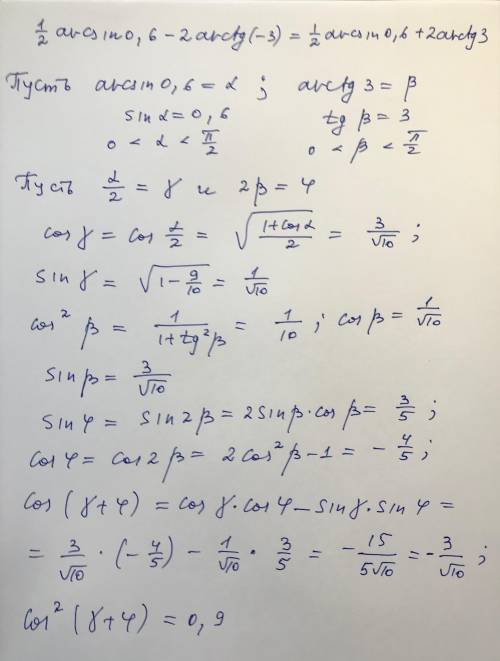 1/2 arcsin 0,6 − 2 arctg(−3) = 1/2 arcsin 0,6 + 2 arctg 3
Пусть arcsin 0,6 = α ; arctg 3 = β
sin α = 0,6 tg β = 3
0 < α < π/2 0 < β < π/2
Пусть α/2 = γ и 2β = φ
cos γ = cos α/2 = √((1+cos α)/2) = 3/√10 ;
sin γ = √(1 − 9/10) = 1/√10
cos² β = 1/(1+tg² β) = 1/10 ; cos β = 1/√10
sin β = 3/√10
sin φ = sin 2β = 2 sin β · cos β = 3/5 ;
cos φ = cos 2β = 2 cos² β − 1 = − 4/5 ;
cos (γ + φ) = cos γ · cos φ − sin γ · sin φ =
= 3/√10 · (− 4/5) − 1/√10 · 3/5 = − 15/(5√10) = − 3/√10 ;
cos² (γ + φ) = 0,9